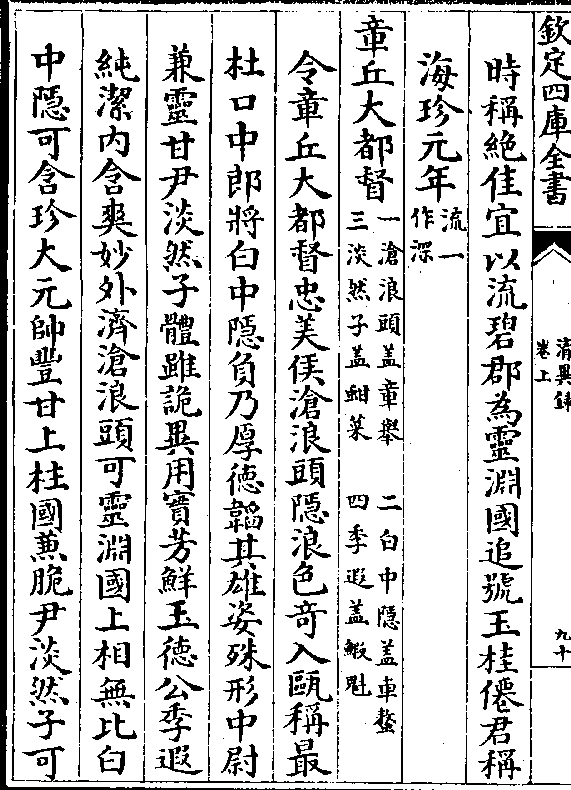 欽定四庫全書
清異錄
卷上
九十
時稱絶佳宜以流碧郡為靈淵國追號玉桂僊君稱
海珍元年流一
作深
章丘大都督一滄浪頭盖章舉 二白中隱盖車螯
三淡然子盖蚶菜 四季遐盖蝦魁
令章丘大都督忠美侯滄浪頭隱浪色奇入甌稱最
杜口中郎將白中隱負乃厚德韜其雄姿殊形中尉
兼靈甘尹淡然子體雖詭異用實芳鮮玉德公季遐
純潔内含爽妙外濟滄浪頭可靈淵國上相無比白
中隱可含珍大元帥豐甘上柱國兼脆尹淡然子可